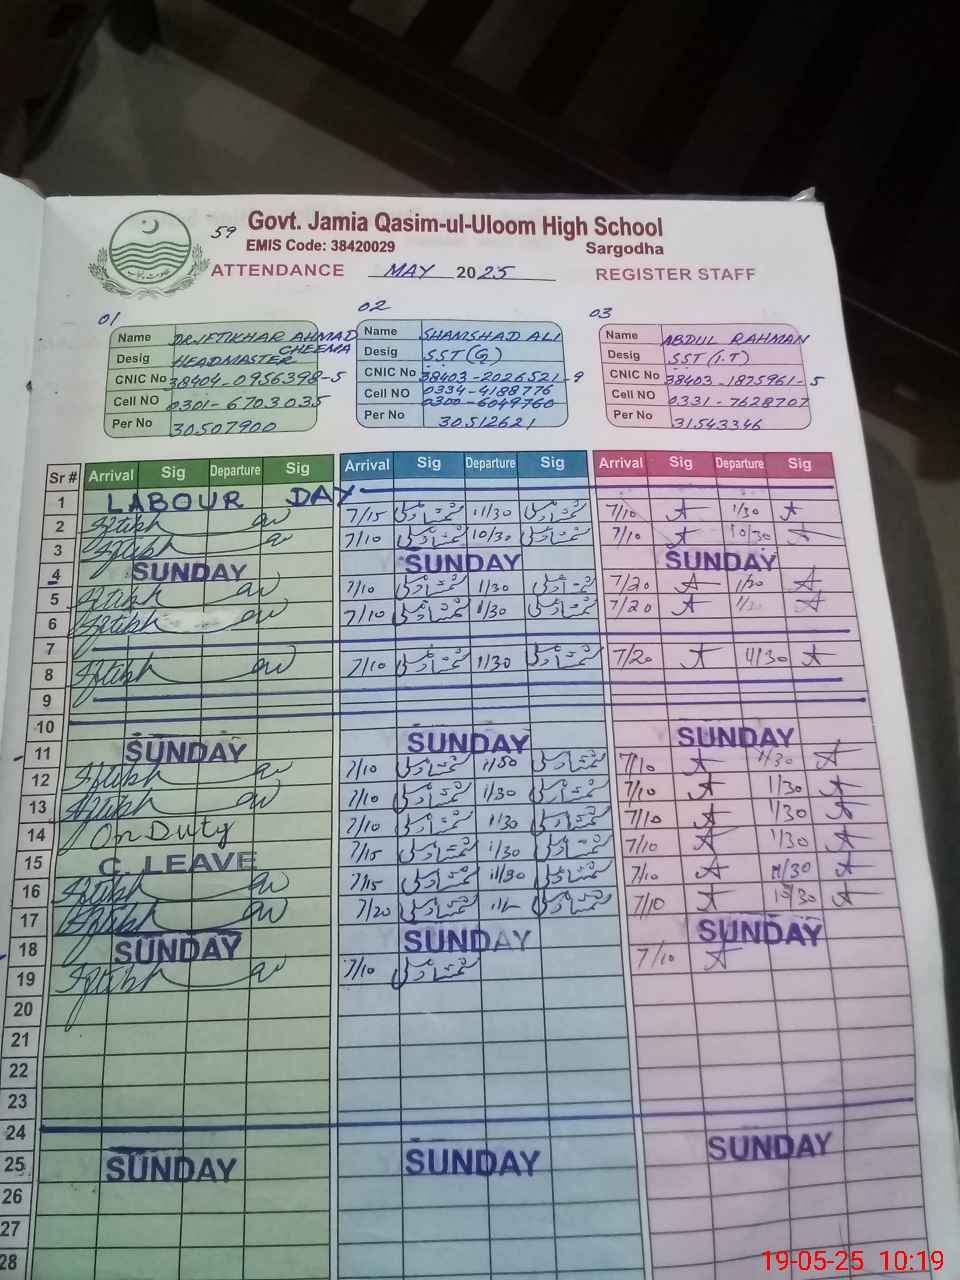 59 Govt. Jamia Qasim-ul-Uloom High School
EMIS Code: 38420029 Sargodha
ATTENDANCE MAY 2025 REGISTER STAFF
01 02 03
Name DR.IFTIKHAR AHMAD CHEEMA
Desig HEADMASTER
CNIC No 38404-0956398-5
Cell NO 0301-6703035
Per No 30507900
Name SHAMSHAD ALI
Desig SST(G)
CNIC No 38403-2026521-9
Cell NO 0334-4188776
0300-6049760
Per No 30512621
Name ABDUL RAHMAN
Desig SST(I.T)
CNIC No 38403-1875961-5
Cell NO 0331-7628707
Per No 31543346
Sr # Arrival Sig Departure Sig Arrival Sig Departure Sig Arrival Sig Departure Sig
1 LABOUR DAY
2 7/15 11/30 7/10 1/30
3 7/10 10/30 7/10 10/30
4 SUNDAY SUNDAY SUNDAY
5 7/10 1/30 7/20 1/30
6 7/10 1/30 7/20 1/30
7
8 7/10 1/30 7/20
9
10
11 SUNDAY SUNDAY SUNDAY
12 7/10 7/10 1/30
13 7/10 1/30 7/10 1/30
14 On Duty 7/10 1/30 7/10 1/30
15 C. LEAVE 7/15 1/30 7/10 1/30
16 7/15 7/10
17 7/20 7/10
18 SUNDAY SUNDAY SUNDAY
19 7/10 7/10
20
21
22
23
24
25 SUNDAY SUNDAY SUNDAY
26
27
28
19-05-25 10:19